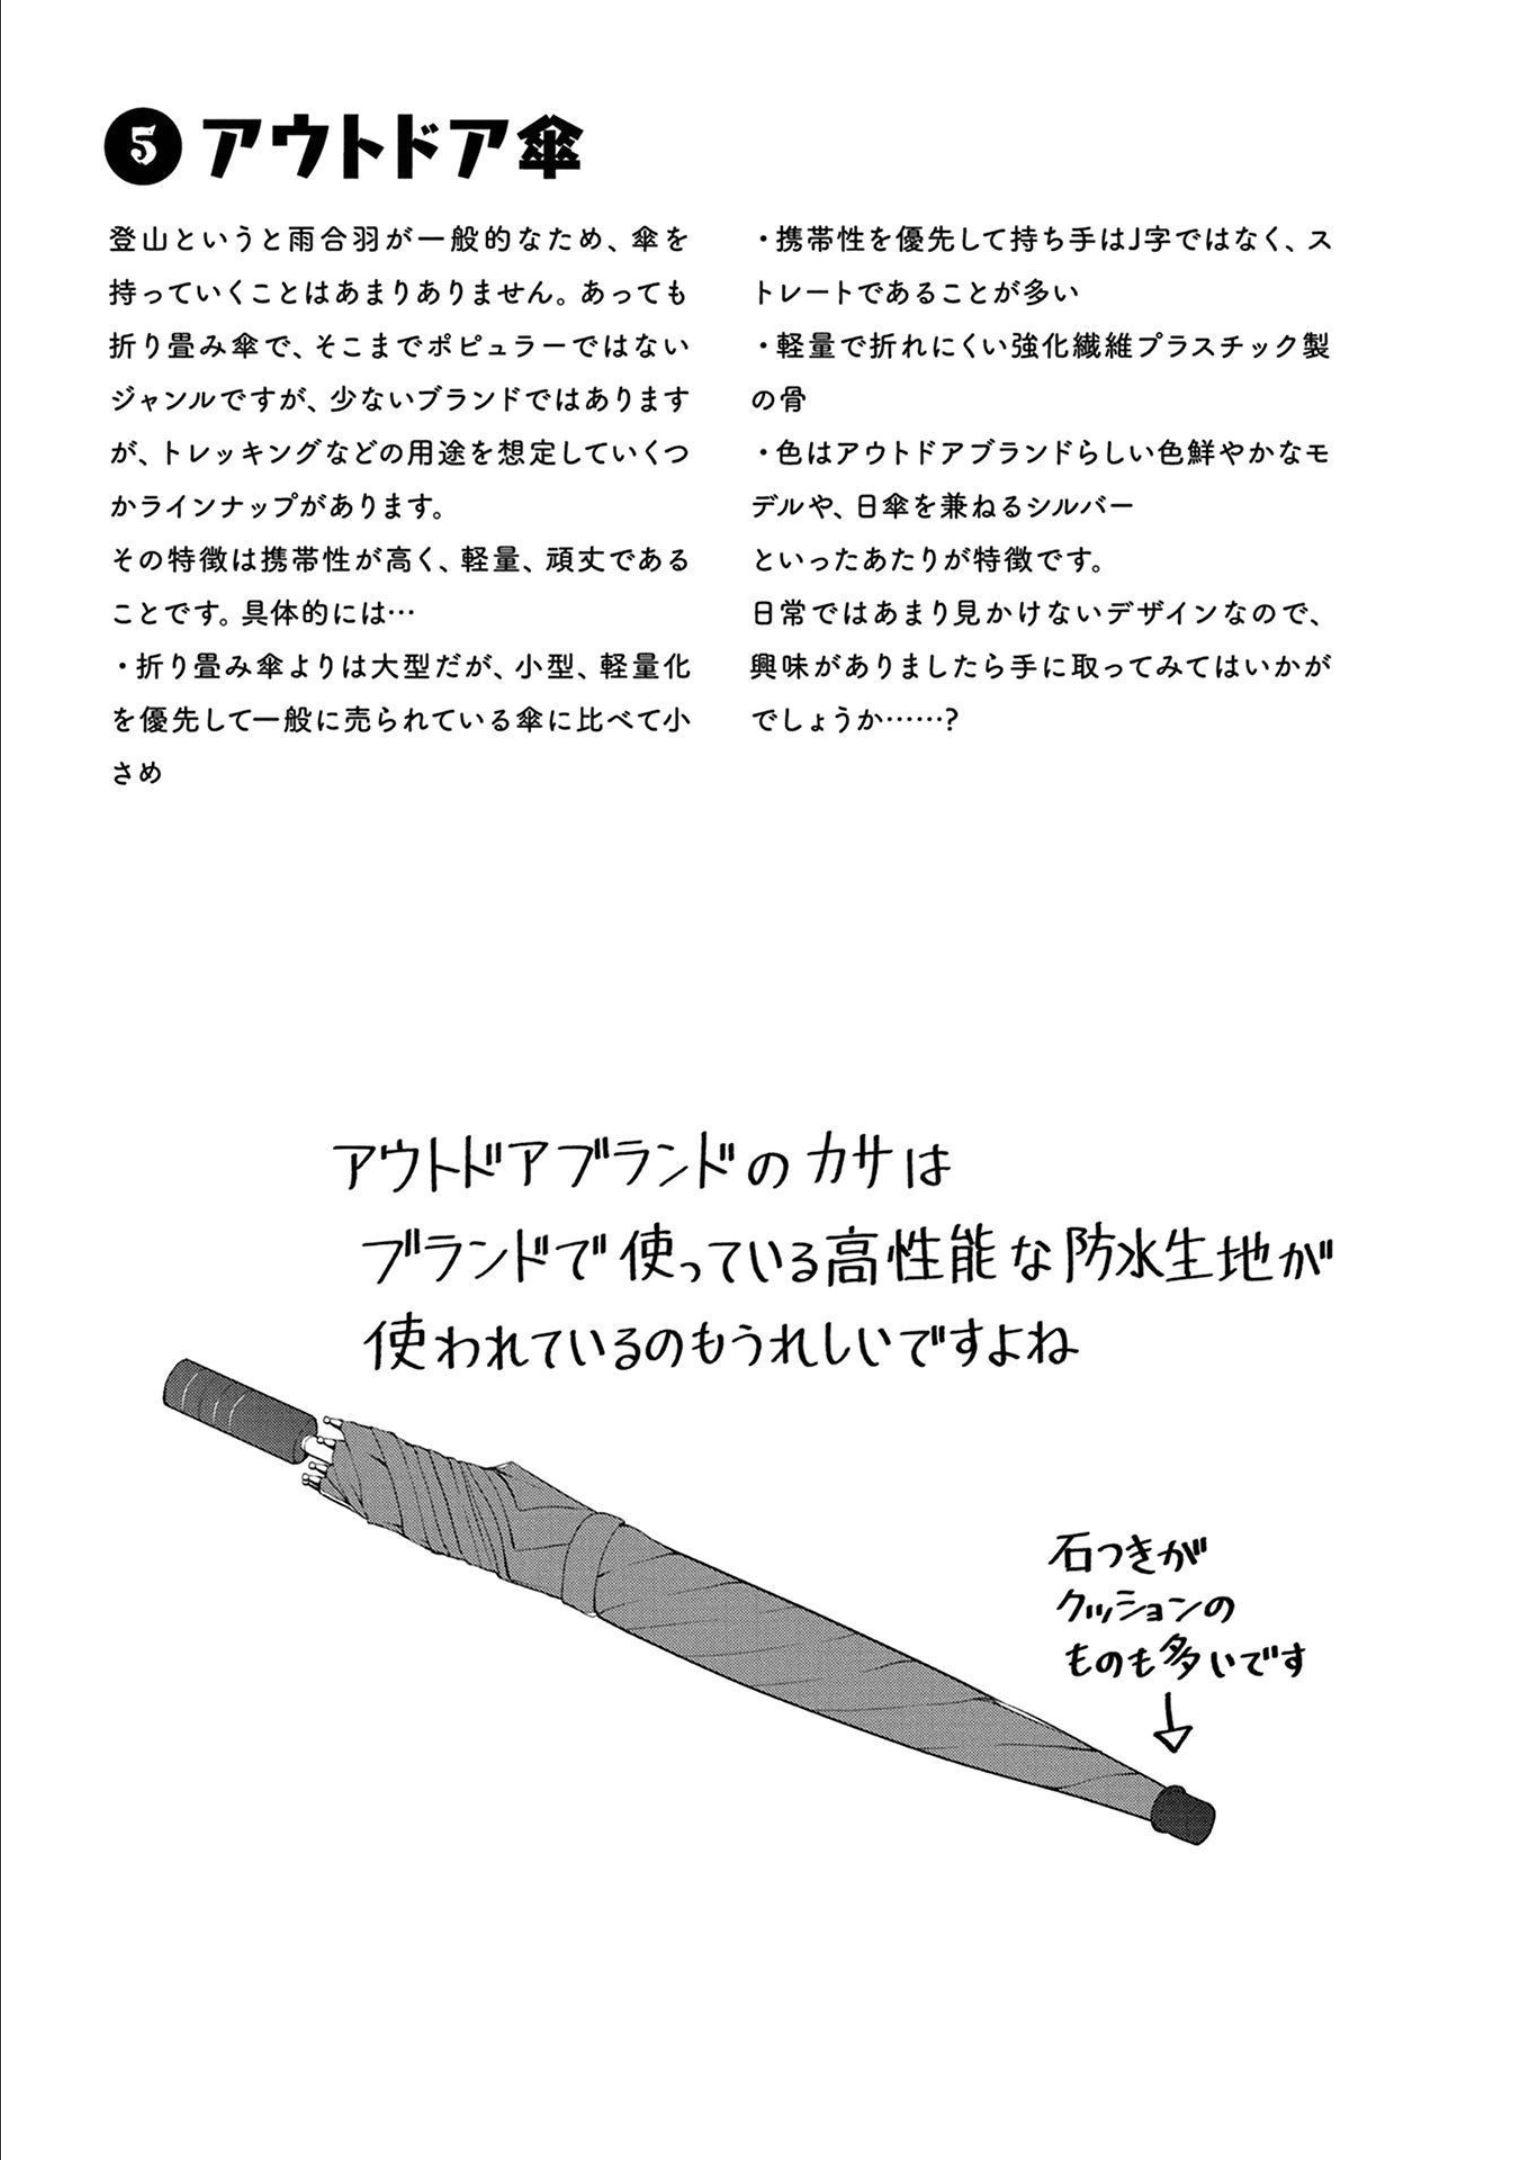 5 アウトドア傘
登山というと雨合羽が一般的なため、傘を
持っていくことはあまりありません。あっても
折り畳み傘で、そこまでポピュラーではない
ジャンルですが、少ないブランドではあります
が、トレッキングなどの用途を想定していくつ
かラインナップがあります。
その特徴は携帯性が高く、軽量、頑丈である
ことです。具体的には…
・折り畳み傘よりは大型だが、小型、軽量化
を優先して一般に売られている傘に比べて小
さめ
・携帯性を優先して持ち手はJ字ではなく、ス
トレートであることが多い
・軽量で折れにくい強化繊維プラスチック製
の骨
・色はアウトドアブランドらしい色鮮やかなモ
デルや、日傘を兼ねるシルバー
といったあたりが特徴です。
日常ではあまり見かけないデザインなので、
興味がありましたら手に取ってみてはいかが
でしょうか……?
アウトドアブランドのカサは
ブランドで使っている高性能な防水生地が
使われているのもうれしいですよね
石つきが
クッションの
ものも多いです